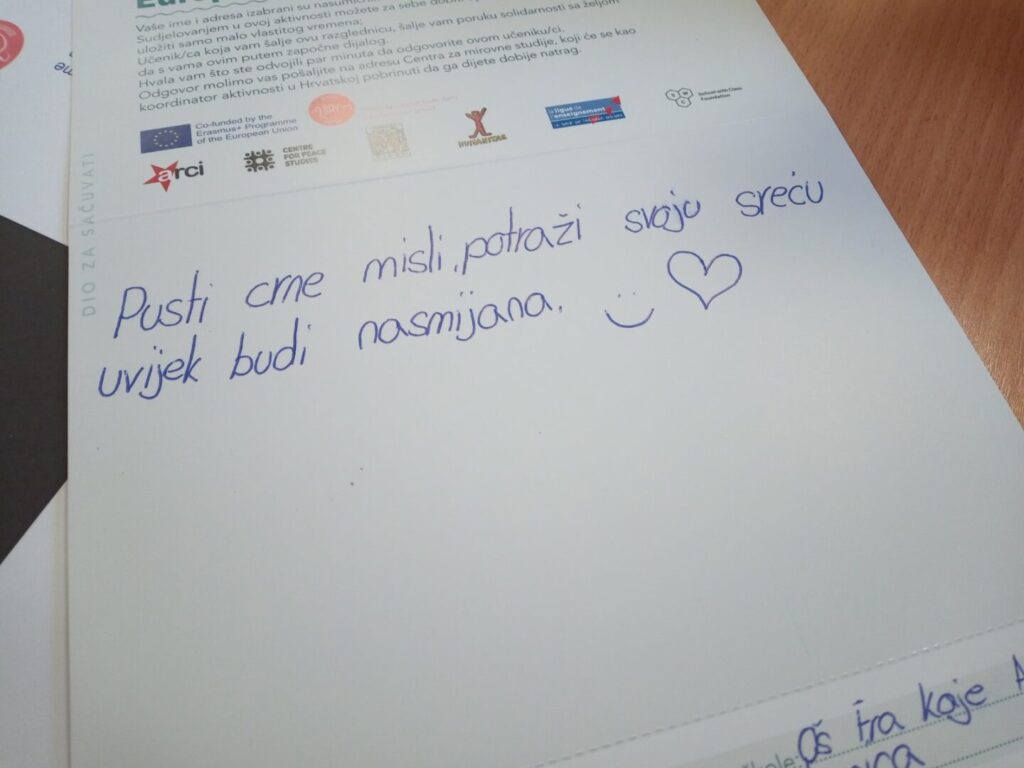 Vaše ime i adresa izabrani su
Sudjelovanjem u ovoj aktivnosti možete za sebe
uložiti samo malo vlastitog vremena;
Učenik/ca koja vam šalje ovu razglednicu, šalje vam poruku solidarnosti sa željom
da s vama ovim putem započne dijalog.
Hvala vam što ste odvojili par minuta da odgovorite ovom učeniku/ci.
Odgovor molimo vas pošaljite na adresu Centra za mirovne studije, koji će se kao
koordinator aktivnosti u Hrvatskoj pobrinuti da ga dijete dobije natrag.
Co-funded by the
Erasmus+ Programme
of the European Union
la ligue de
l'enseignement
School with Class
Foundation
arci
CENTRE
FOR PEACE
STUDIES
DIO ZA SAČUVATI
Pusti crne misli, potraži svoju sreću
uvijek budi nasmijana.
OŠ fra kaje